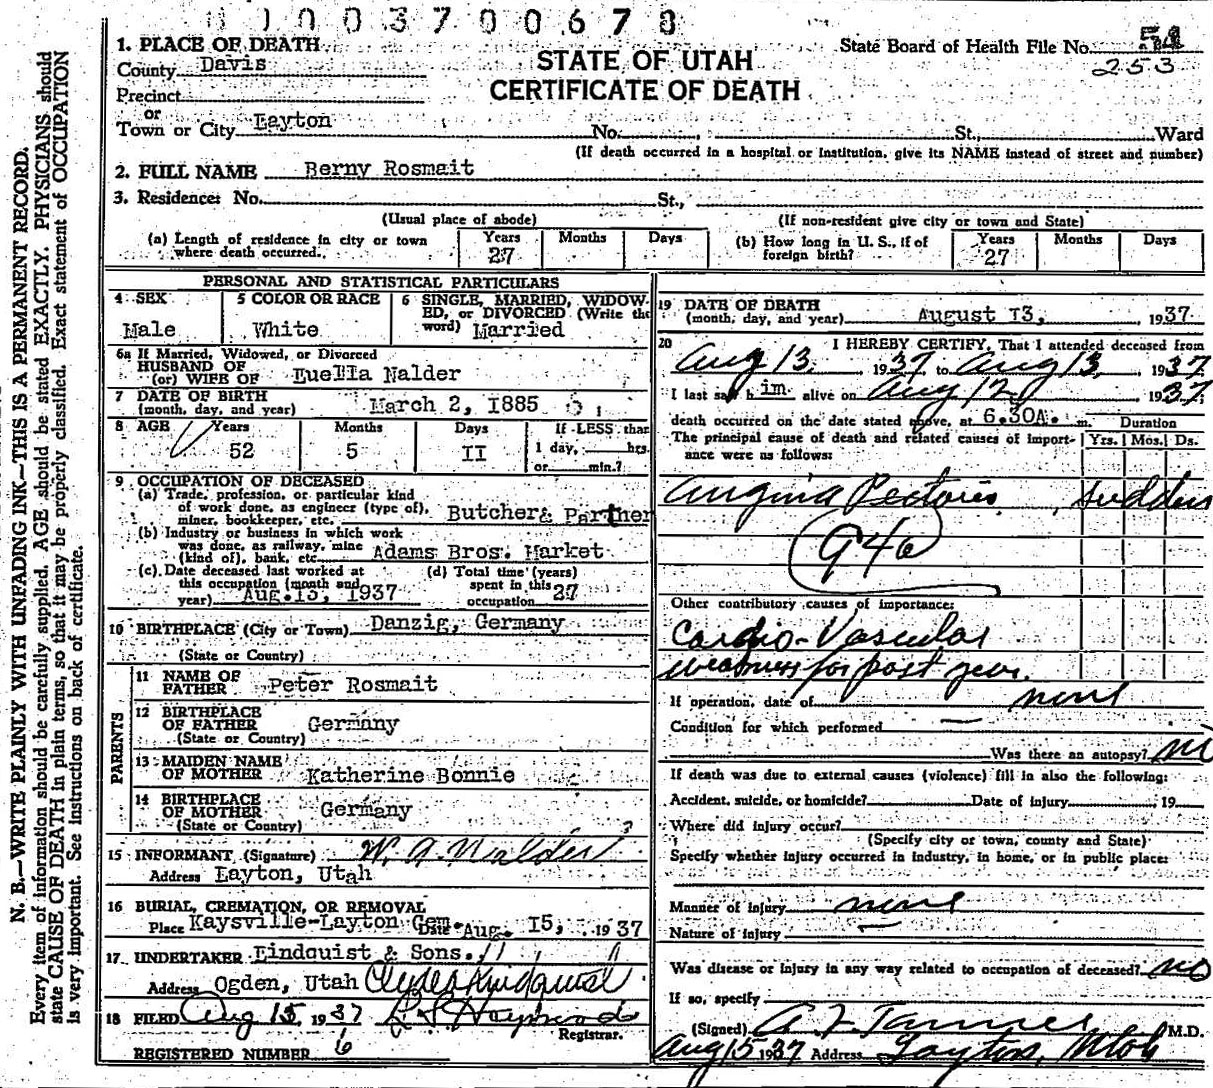 0 0 3 7 0 0 6 7 8
1. PLACE OF DEATH
County Davis
Precinct
or
Town or City Layton No. St., Ward
STATE OF UTAH
CERTIFICATE OF DEATH
State Board of Health File No. 51
253
(If death occurred in a hospital or institution, give its NAME instead of street and number)
2. FULL NAME Berny Rosmait
3. Residence: No. St.,
(Usual place of abode) (If non-resident give city or town and State)
(a) Length of residence in city or town where death occurred. Years 27 Months Days
(b) How long in U. S., if of foreign birth? Years 27 Months Days
PERSONAL AND STATISTICAL PARTICULARS
4 SEX Male
5 COLOR OR RACE White
6 SINGLE, MARRIED, WIDOWED, or DIVORCED (Write the word) Married
6a If Married, Widowed, or Divorced
HUSBAND OF
(or) WIFE OF Luella Nalder
7 DATE OF BIRTH
(month, day, and year) March 2, 1885
8 AGE Years 52 Months 5 Days II
If LESS than
1 day, hrs.
or min.?
9 OCCUPATION OF DECEASED
(a) Trade, profession, or particular kind
of work done, as engineer (type of),
miner, bookkeeper, etc. Butcher& Partner
(b) Industry or business in which work
was done, as railway, mine
(kind of), bank, etc. Adams Bros. Market
(c) Date deceased last worked at
this occupation (month and
year) Aug. 13, 1937
(d) Total time (years)
spent in this
occupation 27
10 BIRTHPLACE (City or Town) Danzig, Germany
(State or Country)
PARENTS
11 NAME OF
FATHER Peter Rosmait
12 BIRTHPLACE
OF FATHER Germany
(State or Country)
13 MAIDEN NAME
OF MOTHER Katherine Bonnie
14 BIRTHPLACE
OF MOTHER Germany
(State or Country)
15 INFORMANT (Signature) W. A. Nalder
Address Layton, Utah
16 BURIAL, CREMATION, OR REMOVAL
Place Kaysville-Layton Cem. Date Aug. 15, 1937
17 UNDERTAKER Lindquist & Sons.
Address Ogden, Utah Clyde Lindquist
18 FILED Aug 15 1937 Heywood
Registrar.
REGISTERED NUMBER 6
19 DATE OF DEATH
(month, day, and year) August 13, 1937
20 I HEREBY CERTIFY, That I attended deceased from
Aug 13, 1937 to Aug 13, 1937
I last saw him alive on Aug 12, 1937
death occurred on the date stated above, at 6.30A. m.
The principal cause of death and related causes of importance were as follows:
Duration
Yrs. Mos. Ds.
Angina Pectoris, sudden
94a
Other contributory causes of importance:
Cardio-Vascular
weakness for past year.
If operation, date of none
Condition for which performed
Was there an autopsy? no
If death was due to external causes (violence) fill in also the following:
Accident, suicide, or homicide? Date of injury 19
Where did injury occur?
(Specify city or town, county and State)
Specify whether injury occurred in industry, in home, or in public place:
Manner of injury none
Nature of injury
Was disease or injury in any way related to occupation of deceased? no
If so, specify
(Signed) A. Z. Tanner M.D.
Aug 15 1937 Address Layton, Utah
N. B.—WRITE PLAINLY WITH UNFADING INK—THIS IS A PERMANENT RECORD.
Every item of information should be carefully supplied. AGE should be stated EXACTLY. PHYSICIANS should
state CAUSE OF DEATH in plain terms, so that it may be properly classified. Exact statement of OCCUPATION
is very important. See instructions on back of certificate.